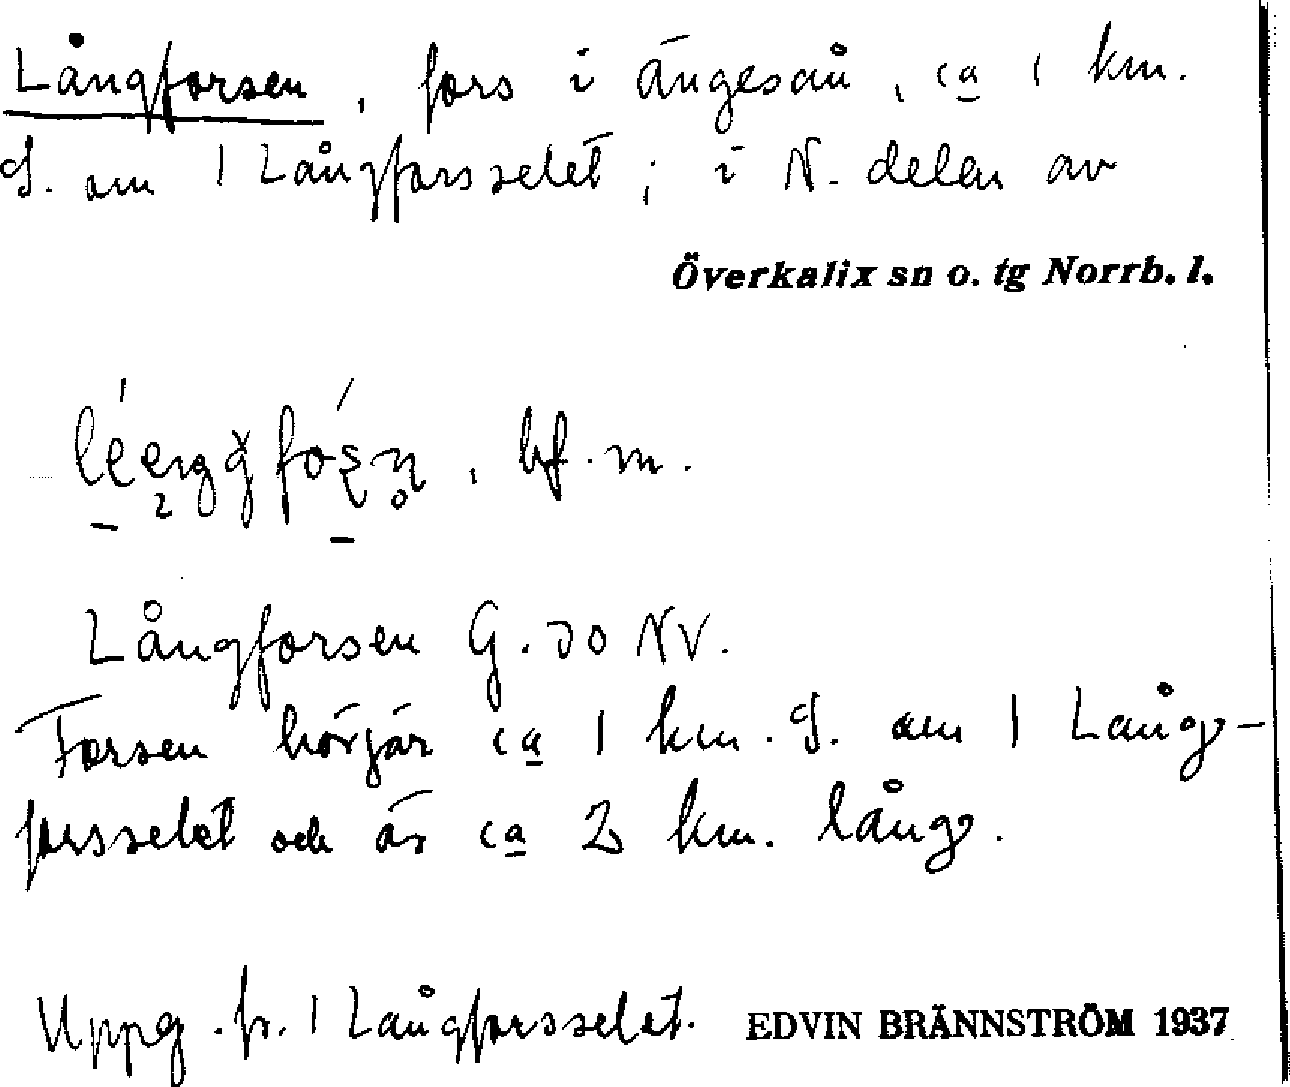 Långforsen, fors i Ängesån, ca 1 km.
S. om 1 Långforsselet; i N. delen av
Överkalix sn o. tg Norrb. l.
, bf. m.
Långforsen G. 30 NV.
Forsen börjar ca 1 km. S. om 1 Lång-
forsselet och är ca 2 km. lång.
Uppg. fr. 1 Långforsselet. EDVIN BRÄNNSTRÖM 1937